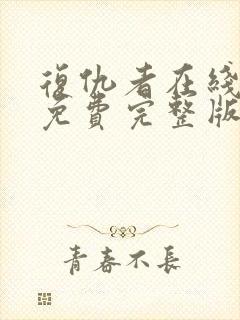 復仇者在綫
免費完整版
青春不長